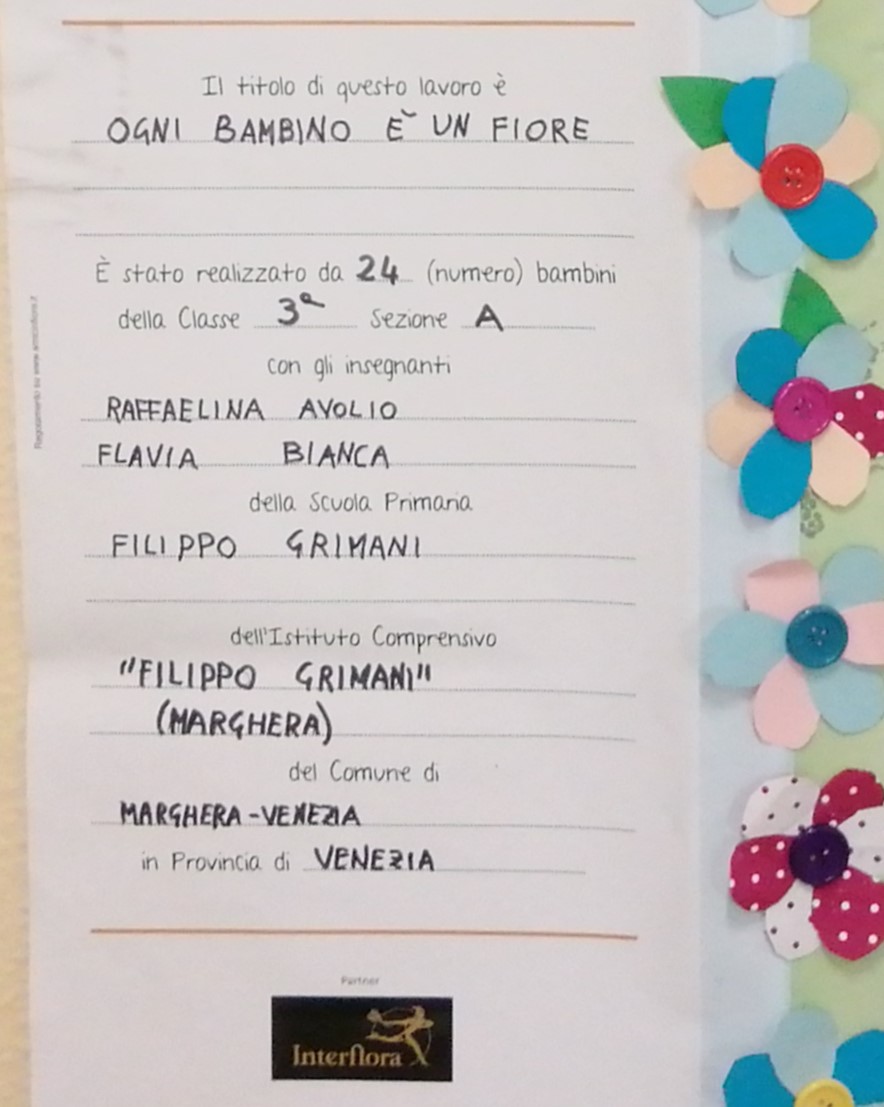 Il titolo di questo lavoro è
OGNI BAMBINO È UN FIORE
È stato realizzato da 24 (numero) bambini
della Classe 3ª Sezione A
con gli insegnanti
RAFFAELINA AVOLIO
FLAVIA BIANCA
della Scuola Primaria
FILIPPO GRIMANI
dell'Istituto Comprensivo
"FILIPPO GRIMANI"
(MARGHERA)
del Comune di
MARGHERA-VENEZIA
in Provincia di VENEZIA
Partner
Interflora
Regolamento su www.